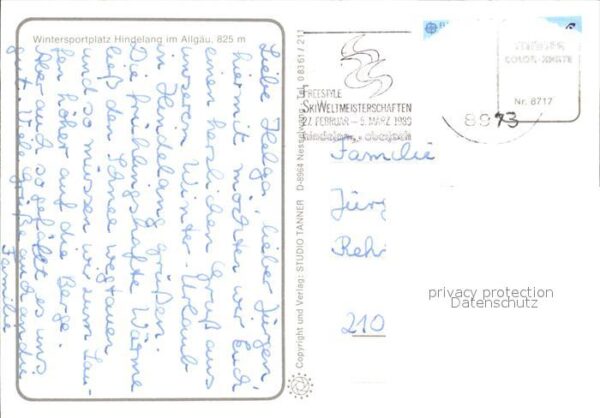 Wintersportplatz Hindelang im Allgäu, 825 m
Liebe Helga, lieber Jürgen,
hiermit möchten wir Euch
einen herzlichen Gruß aus
unserem Winter-Urlaub
in Hindelang grüßen.
Die frühlingshafte Wärme
ließ den Schnee wegtauen
und so müssen wir zum Lau-
fen höher auf die Berge.
Aber auch so gefällt es uns
gut. Viele Grüße auch an die
Familie
Copyright und Verlag: STUDIO TANNER D-8964 Nesselwang Tel. 08361/211
FREESTYLE
SKIWELTMEISTERSCHAFTEN
27. FEBRUAR – 5. MÄRZ 1989
hindelang - oberjoch
8973
COLOR-KARTE
Nr. 8717
Familie
Jürg
Rehr
210
privacy protection
Datenschutz